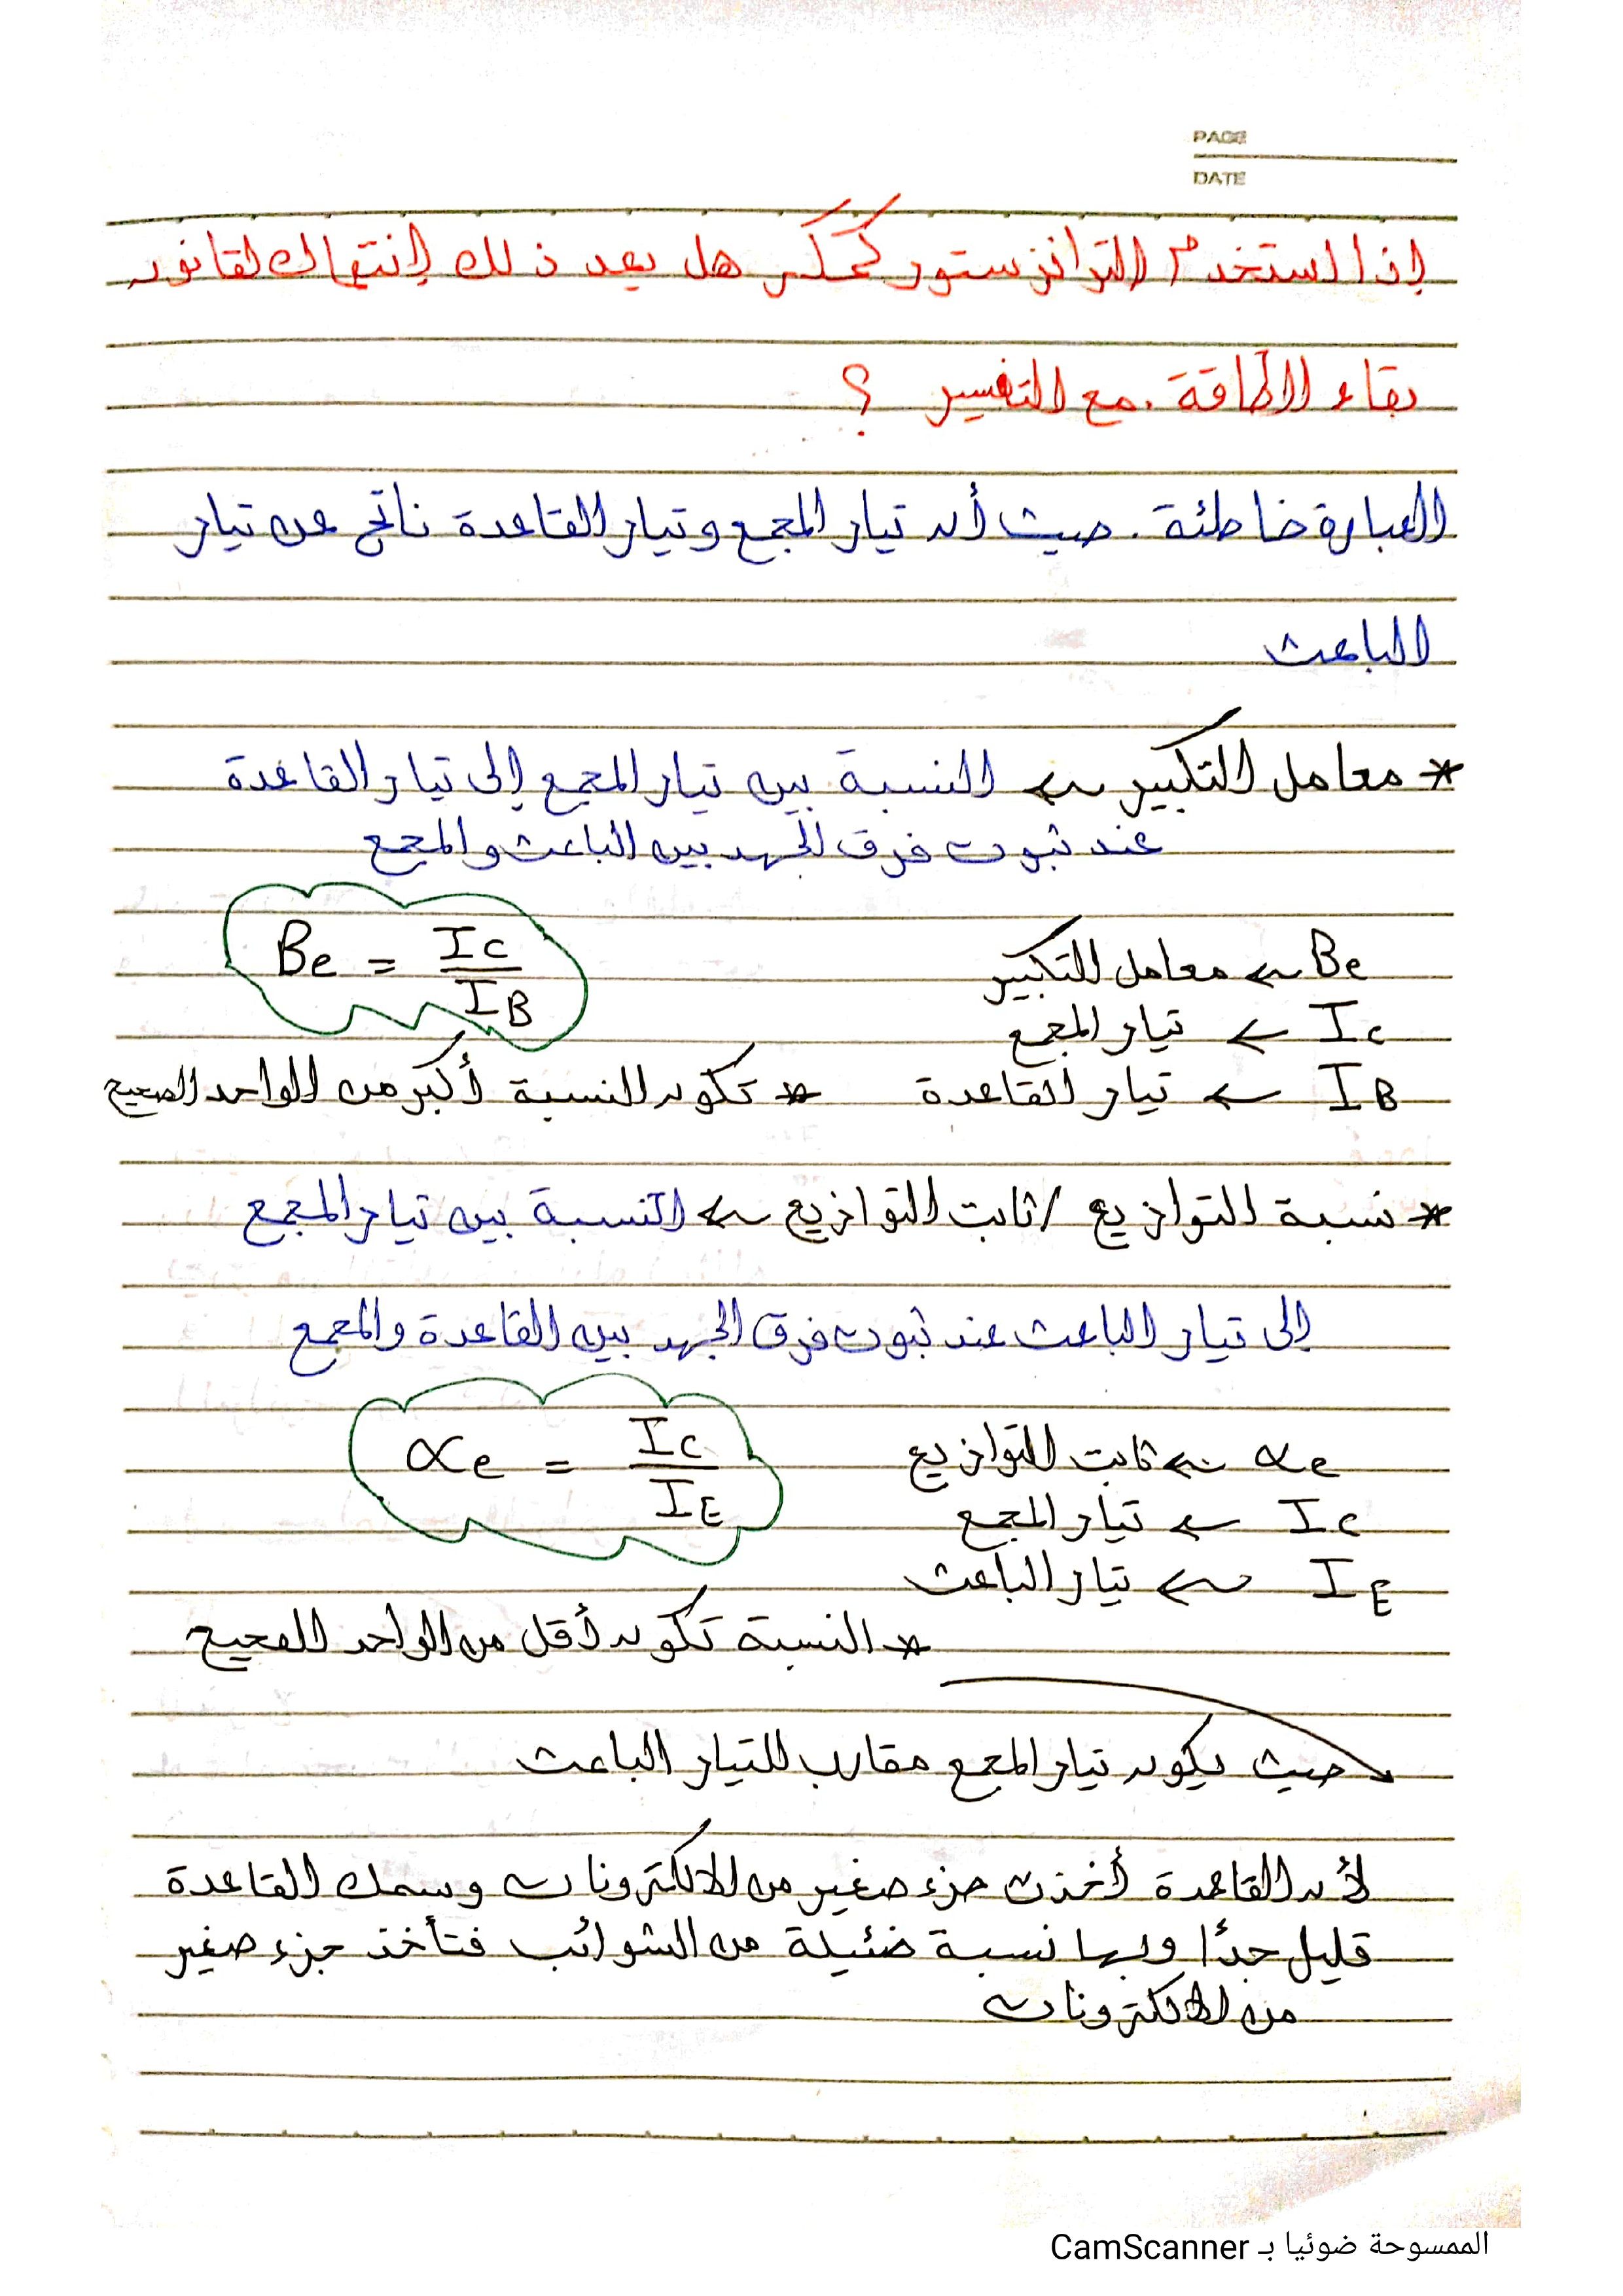 PAGE
DATE
إذا استخدم الترانزستور كمكبر هل يعد ذلك إنتهاك لقانون
بقاء الطاقة . مع التفسير ؟
العبارة خاطئة . حيث أن تيار المجمع وتيار القاعدة ناتج عن تيار
الباعث
* معامل التكبير ← النسبة بين تيار المجمع إلى تيار القاعدة
عند ثبوت فرق الجهد بين الباعث والمجمع
Be = Ic / IB
Be ← معامل التكبير
Ic ← تيار المجمع
IB ← تيار القاعدة * تكون النسبة أكبر من الواحد الصحيح
* نسبة التوازيع / ثابت التوازيع ← النسبة بين تيار المجمع
إلى تيار الباعث عند ثبوت فرق الجهد بين القاعدة والمجمع
∝e = Ic / IE
∝e ← ثابت التوازيع
Ic ← تيار المجمع
IE ← تيار الباعث
* النسبة تكون أقل من الواحد الصحيح
حيث يكون تيار المجمع مقارب للتيار الباعث
لأن القاعدة أخذت جزء صغير من الالكترونات وسمك القاعدة
قليل جدًا وبها نسبة ضئيلة من الشوائب فتأخذ جزء صغير
من الالكترونات
الممسوحة ضوئيا بـ CamScanner